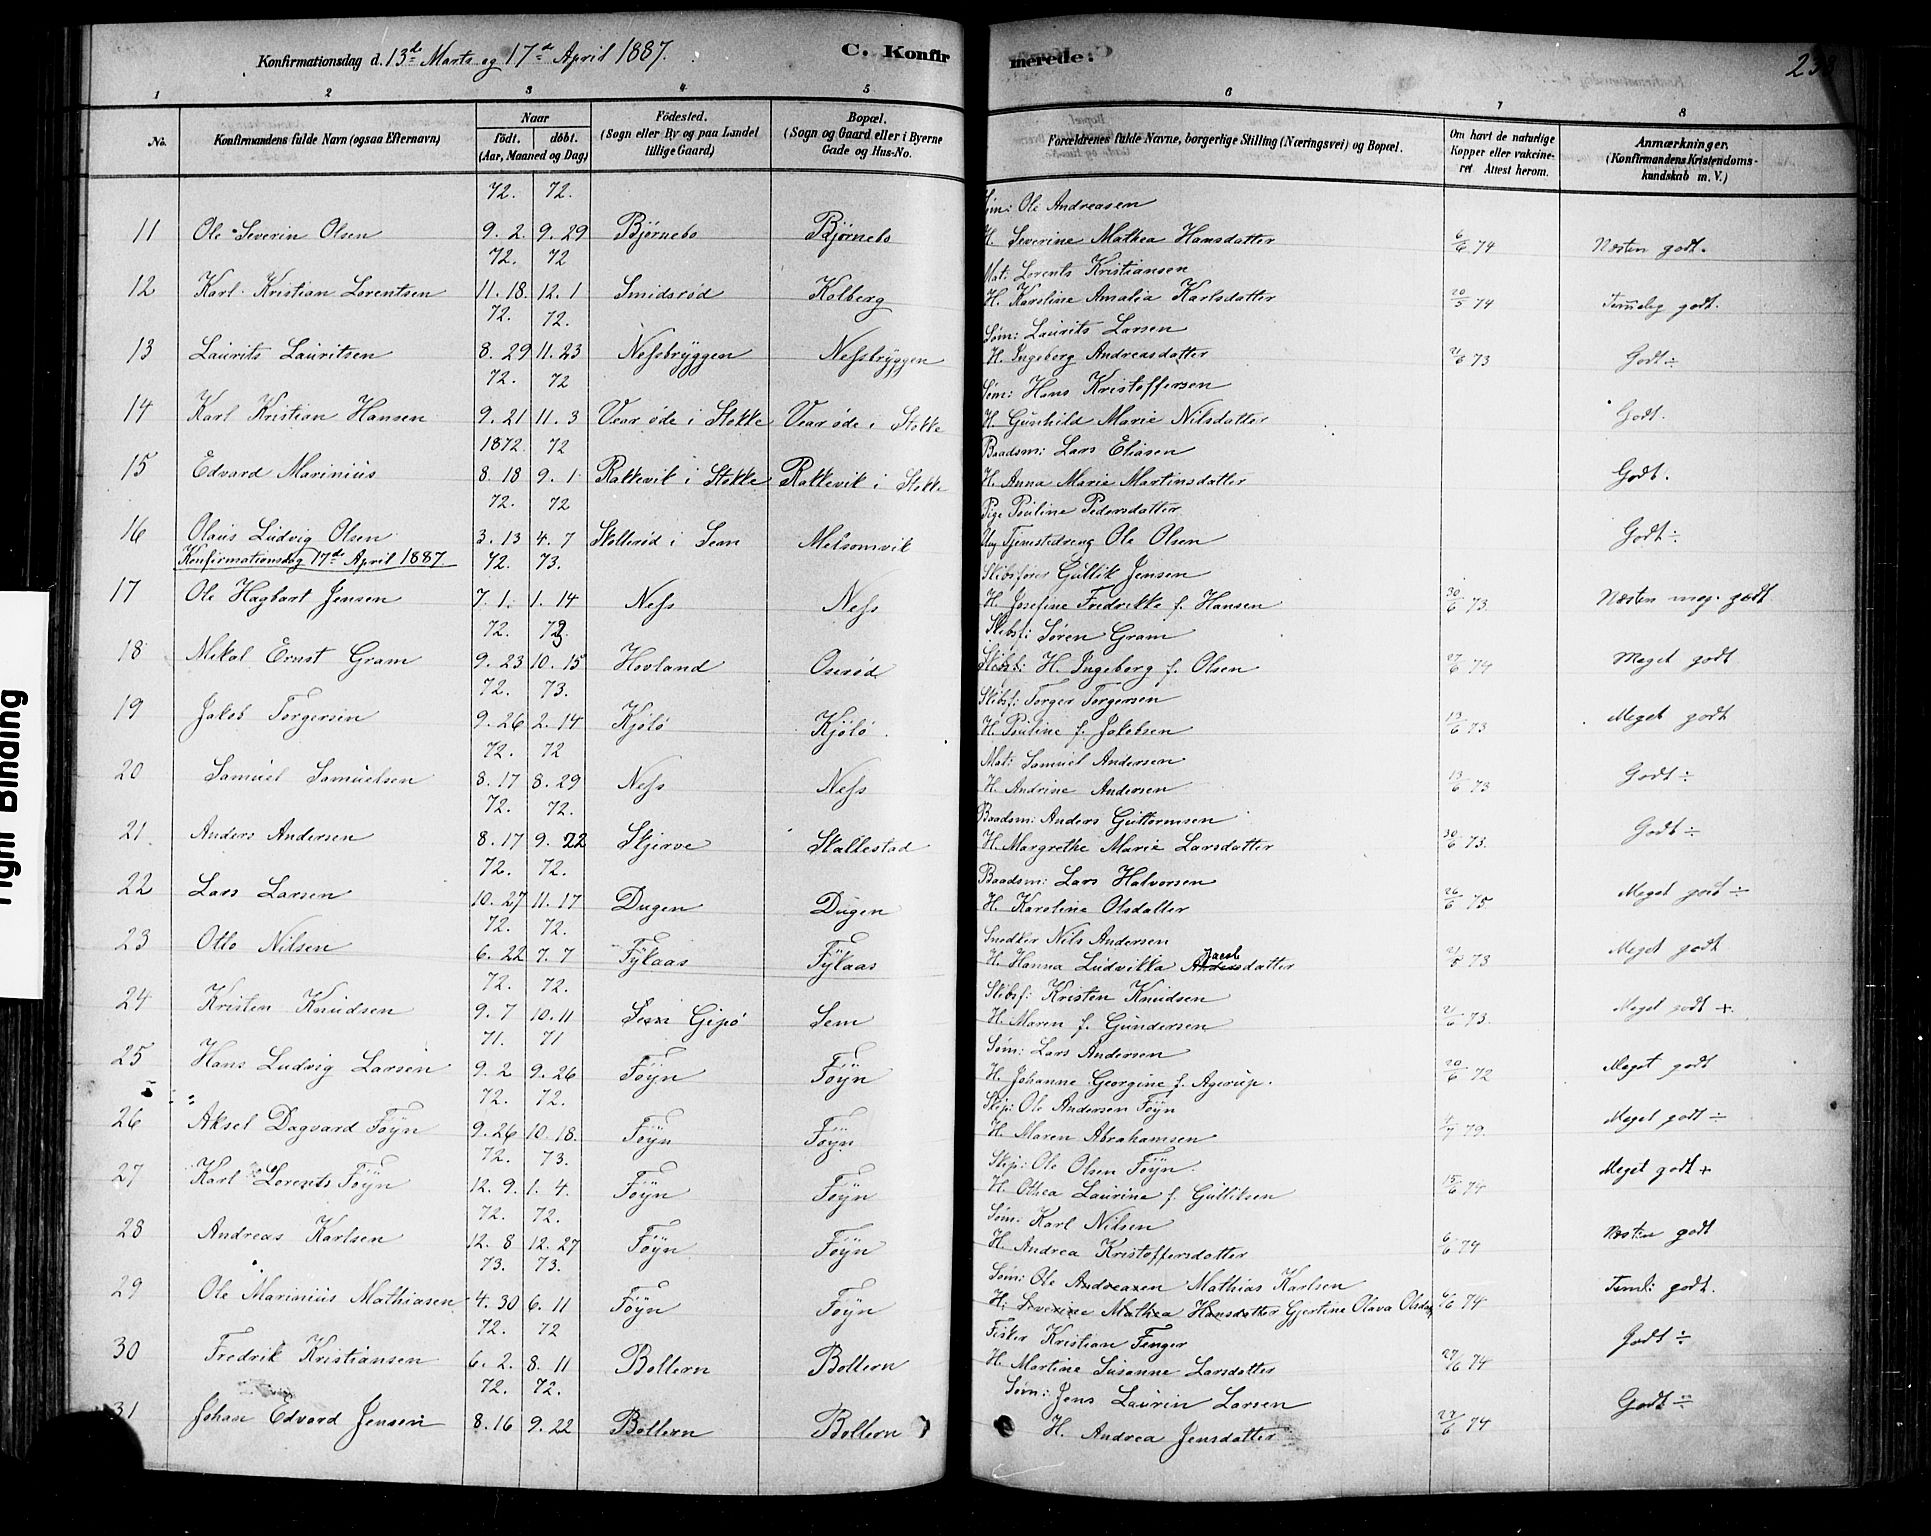 Konfirmationsdag d. 13de Marts og 17de April 1887.
C. Konfirmerede:
1 2 3 4 5 6 7 8
No. Konfirmandens fulde Navn (ogsaa Efternavn) Naar født. døbt. (Aar, Maaned og Dag) Fødested. (Sogn eller By og paa Landet tillige Gaard) Bopæl. (Sogn og Gaard eller i Byerne Gade og Hus-No. Forældrenes fulde Navne, borgerlige Stilling (Næringsvei) og Bopæl. Om havt de naturlige Kopper eller vakcineret Attest herom. Anmærkninger. (Konfirmandens Kristendomskundskab m. V.)
72. 72. Søm: Ole Andreasen
11 Ole Severin Olsen 9. 2. 9. 29 Bjørnebo Bjørnebo H. Severine Mathea Hansdatter 6/6 74 Næsten godt.
72. 72 Mat: Lorents Kristiansen
12 Karl Kristian Lorentsen 11. 18. 12. 1 Smidsrød Kolberg H. Karoline Amalia Karlsdatter 20/5 74 Temelig godt.
72. 72. Søm: Laurits Larsen
13 Laurits Lauritsen 8. 29 11. 23 Nessbryggen Nessbryggen H. Ingeborg Andreasdatter 21/6 73 Godt ÷
72. 72 Søm: Hans Kristoffersen
14 Karl Kristian Hansen 9. 21 11. 3 Vear øde i Stokke Vear øde i Stokke H. Gunhild Marie Nilsdatter Godt.
1872. 72 Baadsm: Lars Eliasen
15 Edvard Marinius 8. 18 9. 1 Rakkevik i Stokke Rakkevik i Stokke H. Anna Marie Martinsdatter Godt.
72. 72 Pige Pauline Pedersdatter
16 Olaus Ludvig Olsen 3. 13 4. 7 Skallerød i Sem Melsomvik Ung Tjenestedreng Ole Olsen Godt ÷
Konfirmationsdag 17de April 1887 72. 73. Skibsfører Gullik Jensen
17 Ole Hagbart Jensen 7. 1. 1. 14 Ness Ness H. Josefine Fredrikke f. Hansen 30/6 73 Næsten meg. godt
72. 73 Skibsf: Søren Gram
18 Mikal Ernst Gram 9. 23 10. 15 Hovland Oserød H. Ingeborg f. Olsen 27/6 74 Meget godt
72. 73. Skibsf: Torger Torgersen
19 Jakob Torgersen 9. 26 2. 14 Kjølø Kjølø H. Pauline f. Jakobsen 13/6 73 Meget godt
72. 72 Mat: Samuel Andersen
20 Samuel Samuelsen 8. 17 8. 29 Ness Ness H. Andrine Andersen 13/6 73 Godt ÷
72. 72. Baadsm: Anders Guttormsen
21 Anders Andersen 8. 17 9. 22 Skjerve Skallestad H. Margrethe Marie Larsdatter 30/6 73. Godt ÷
72. 72. Baadsm: Lars Halvorsen
22 Lars Larsen 10. 27 11. 17 Dugen Dugen H. Karoline Olsdatter 26/6 75. Meget godt ÷
72. 72. Snedker Nils Andersen
23 Otto Nilsen 6. 22 7. 7 Fylaas Fylaas H. Hanna Ludvikka Jacobsdatter 21/8 73 Meget godt
72. 72. Skibsf: Kristen Knudsen
24 Kristen Knudsen 9. 7 10. 11 Sem Gipø Sem H. Maren f. Gundersen 21/6 73. Meget godt +
71. 71 Søm: Lars Andersen
25 Hans Ludvig Larsen 9. 2 9. 26 Føyn Føyn H. Johanne Georgine f. Agerup. 20/6 72 Meget godt
72. 72. Skip: Ole Andersen Føyn
26 Aksel Dagvard Føyn 9. 26 10. 18. Føyn Føyn H. Maren Abrahamsen 4/7 79. Meget godt ÷
72. 73. Skip: Ole Olsen Føyn.
27 Karl Lorents Føyn 12. 9. 1. 4. Føyn Føyn H. Othea Laurine f. Gulliksen 15/6 74 Meget godt +
72. 72. Søm: Karl Nilsen
28 Andreas Karlsen 12. 8 12. 27 Føyn Føyn H. Andrea Kristoffersdatter 6/6 74 Næsten godt
73. 73. Søm: Ole Andreasen Mathias Karlsen
29 Ole Marinius Mathiasen 4. 30 6. 11 Føyn Føyn H: Severine Mathea Hansdatter Gjertine Olava Olsdatter 6/6 74 Teml: godt.
72. 72 Fisker Kristian Finger
30 Fredrik Kristiansen 6. 2. 8. 11 Bollern Bollern H. Martine Susanne Larsdatter 27/6 74 Godt ÷
72. 72. Søm: Jens Laurin Larsen
31 Johan Edvard Jensen 8. 16 9. 22 Bollern Bollern H. Andrea Jensdatter 27/6 74 Godt ÷
Tight Binding